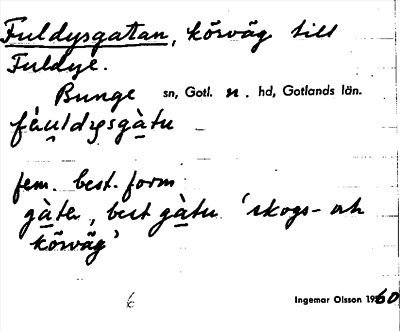 Fuldysgatan, körväg till
Fuldye.
Bunge sn, Gotl. n. hd, Gotlands län.
fàuldysgàtu
fem. best. form
gàta, best gàtu 'skogs- och
körväg'
Ingemar Olsson 1960